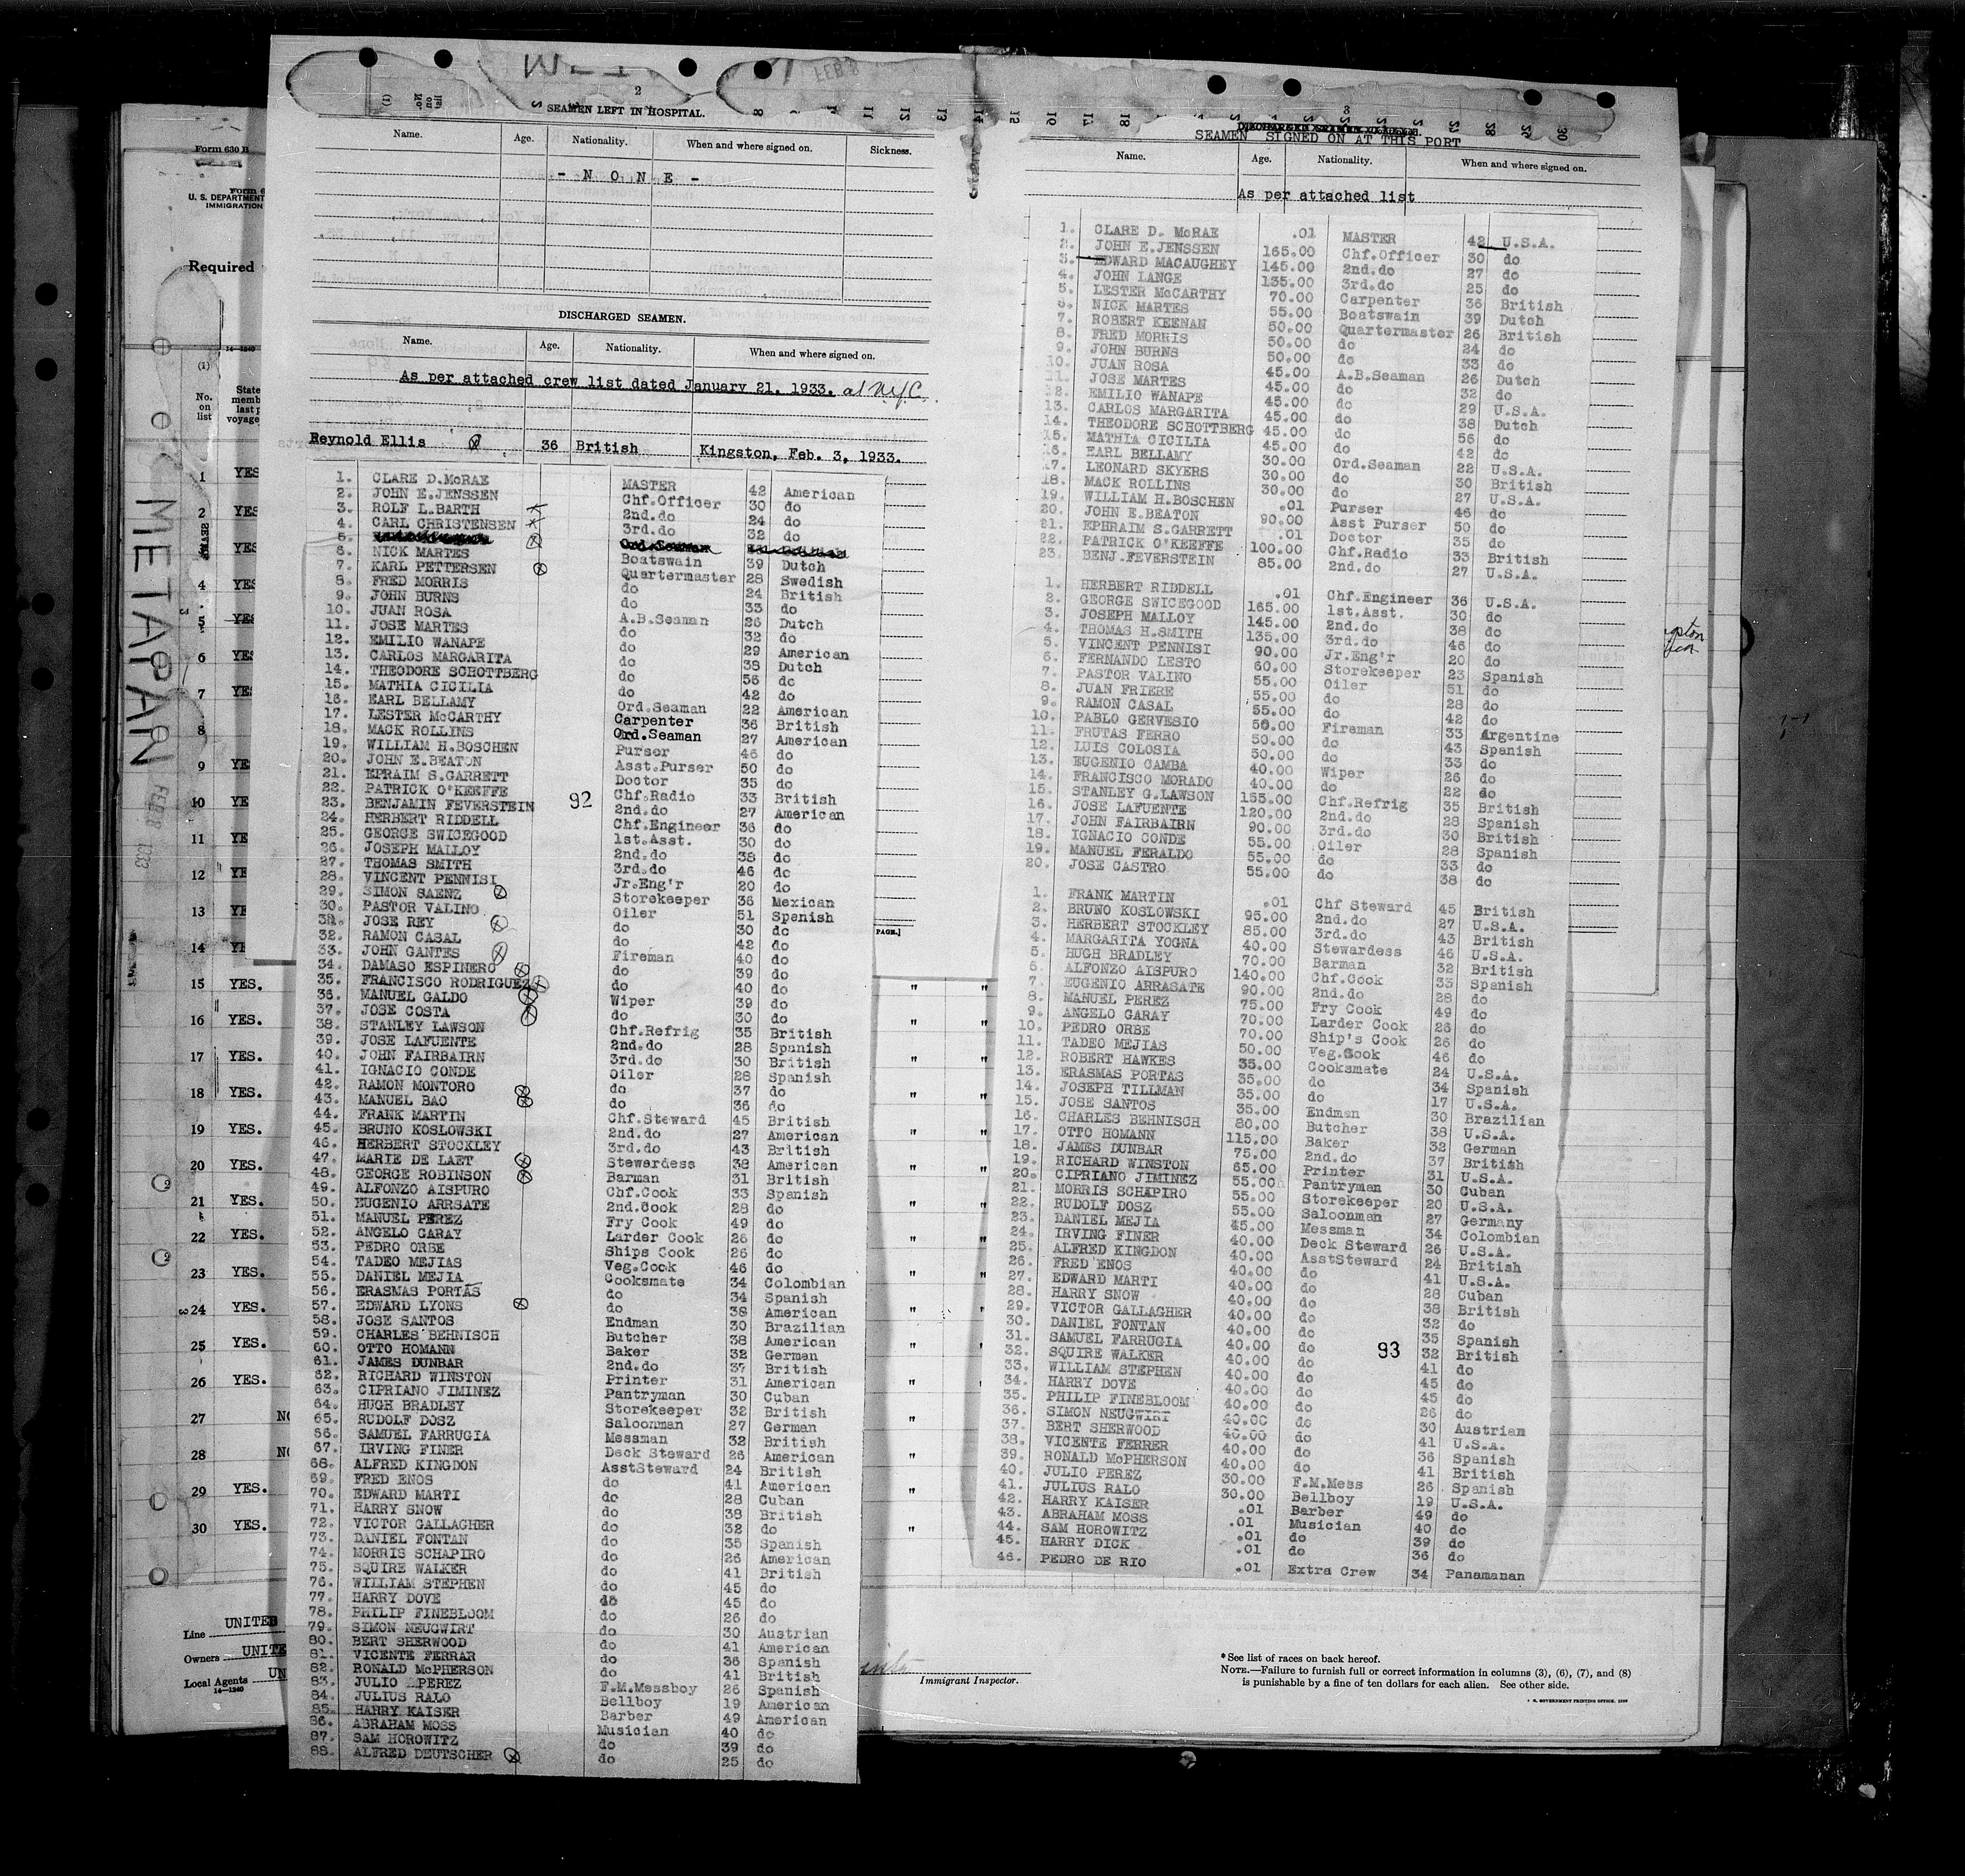 2
SEAMEN LEFT IN HOSPITAL.
Name. Age. Nationality. When and where signed on. Sickness.
- N O N E -
DISCHARGED SEAMEN.
Name. Age. Nationality. When and where signed on.
As per attached crew list dated January 21. 1933. at N.Y.C.
Reynold Ellis 36 British Kingston, Feb. 3, 1933.
1. CLARE D.McRAE MASTER 42 American
2. JOHN E.JENSSEN Chf.Officer 30 do
3. ROLF L.BARTH 2nd.do 24 do
4. CARL CHRISTENSEN 3rd.do 32 do
5. Ord.Seaman
6. NICK MARTES Boatswain 39 Dutch
7. KARL PETTERSEN Quartermaster 28 Swedish
8. FRED MORRIS do 24 British
9. JOHN BURNS do 33 do
10. JUAN ROSA A.B.Seaman 26 Dutch
11. JOSE MARTES do 32 do
12. EMILIO WANAPE do 29 American
13. CARLOS MARGARITA do 38 Dutch
14. THEODORE SCHOTTBERG do 56 do
15. MATHIA CICILIA do 42 do
16. EARL BELLAMY Ord.Seaman 22 American
17. LESTER McCARTHY Carpenter 36 British
18. MACK ROLLINS Ord.Seaman 27 American
19. WILLIAM H.BOSCHEN Purser 46 do
20. JOHN E.BEATON Asst.Purser 50 do
21. EPRAIM S.GARRETT Doctor 35 do
22. PATRICK O'KEEFFE Chf.Radio 33 British
23. BENJAMIN FEVERSTEIN 92 2nd.do 27 American
24. HERBERT RIDDELL Chf.Engineer 36 do
25. GEORGE SWICEGOOD 1st.Asst. 30 do
26. JOSEPH MALLOY 2nd.do 38 do
27. THOMAS SMITH 3rd.do 46 do
28. VINCENT PENNISI Jr.Eng'r 20 do
29. SIMON SAENZ Storekeeper 36 Mexican
30. PASTOR VALINO Oiler 51 Spanish
31. JOSE REY do 30 do
32. RAMON CASAL do 42 do
33. JOHN GANTES Fireman 40 do
34. DAMASO ESPINERO do 39 do
35. FRANCISCO RODRIGUEZ do 40 do
36. MANUEL GALDO Wiper 39 do
37. JOSE COSTA do 30 do
38. STANLEY LAWSON Chf.Refrig 35 British
39. JOSE LAFUENTE 2nd.do 28 Spanish
40. JOHN FAIRBAIRN 3rd.do 30 British
41. IGNACIO CONDE Oiler 28 Spanish
42. RAMON MONTORO do 37 do
43. MANUEL BAO do 36 do
44. FRANK MARTIN Chf.Steward 45 British
45. BRUNO KOSLOWSKI 2nd.do 27 American
46. HERBERT STOCKLEY 3rd.do 43 British
47. MARIE DE LAET Stewardess 38 American
48. GEORGE ROBINSON Barman 31 British
49. ALFONZO AISPURO Chf.Cook 33 Spanish
50. EUGENIO ARRSATE 2nd.Cook 28 do
51. MANUEL PEREZ Fry Cook 49 do
52. ANGELO GARAY Larder Cook 26 do
53. PEDRO ORBE Ships Cook 26 do
54. TADEO MEJIAS Veg.Cook 46 do
55. DANIEL MEJIA Cooksmate 34 Colombian
56. ERASMAS PORTAS do 34 Spanish
57. EDWARD LYONS do 38 American
58. JOSE SANTOS Endman 30 Brazilian
59. CHARLES BEHNISCH Butcher 38 American
60. OTTO HOMANN Baker 32 German
61. JAMES DUNBAR 2nd.do 37 British
62. RICHARD WINSTON Printer 31 American
63. CIPRIANO JIMINEZ Pantryman 30 Cuban
64. HUGH BRADLEY Storekeeper 32 British
65. RUDOLF DOSZ Saloonman 27 German
66. SAMUEL FARRUGIA Messman 32 British
67. IRVING FINER Deck Steward 26 American
68. ALFRED KINGDON AsstSteward 24 British
69. FRED ENOS do 41 American
70. EDWARD MARTI do 28 Cuban
71. HARRY SNOW do 38 British
72. VICTOR GALLAGHER do 32 do
73. DANIEL FONTAN do 35 Spanish
74. MORRIS SCHAPIRO do 26 American
75. SQUIRE WALKER do 41 British
76. WILLIAM STEPHEN do 45 do
77. HARRY DOVE do 45 do
78. PHILIP FINEBLOOM do 26 do
79. SIMON NEUGWIRT do 30 Austrian
80. BERT SHERWOOD do 41 American
81. VICENTE FERRAR do 36 Spanish
82. RONALD McPHERSON do 41 British
83. JULIO PEREZ F.M.Messboy 26 Spanish
84. JULIUS RALO Bellboy 19 American
85. HARRY KAISER Barber 49 American
86. ABRAHAM MOSS Musician 40 do
87. SAM HOROWITZ do 39 do
88. ALFRED DEUTSCHER do 25 do
3
SEAMEN SIGNED ON AT THIS PORT
Name. Age. Nationality. When and where signed on.
As per attached list
1. CLARE D. McRAE .01 MASTER 42 U.S.A.
2. JOHN E.JENSSEN 165.00 Chf.Officer 30 do
3. EDWARD MACAUGHEY 145.00 2nd.do 27 do
4. JOHN LANGE 135.00 3rd.do 25 do
5. LESTER McCARTHY 70.00 Carpenter 36 British
6. NICK MARTES 55.00 Boatswain 39 Dutch
7. ROBERT KEENAN 50.00 Quartermaster 26 British
8. FRED MORRIS 50.00 do 24 do
9. JOHN BURNS 50.00 do 33 do
10. JUAN ROSA 45.00 A.B.Seaman 26 Dutch
11. JOSE MARTES 45.00 do 32 do
12. EMILIO WANAPE 45.00 do 29 U.S.A.
13. CARLOS MARGARITA 45.00 do 38 Dutch
14. THEODORE SCHOTTBERG 45.00 do 56 do
15. MATHIA CICILIA 45.00 do 42 do
16. EARL BELLAMY 30.00 Ord.Seaman 22 U.S.A.
17. LEONARD SKYERS 30.00 do 30 British
18. MACK ROLLINS 30.00 do 27 U.S.A.
19. WILLIAM H.BOSCHEN .01 Purser 46 do
20. JOHN E.BEATON 90.00 Asst Purser 50 do
21. EPHRAIM S.GARRETT .01 Doctor 35 do
22. PATRICK O'KEEFFE 100.00 Chf.Radio 33 British
23. BENJ.FEVERSTEIN 85.00 2nd.do 27 U.S.A.
1. HERBERT RIDDELL .01 Chf.Engineer 36 U.S.A.
2. GEORGE SWICEGOOD 165.00 1st.Asst. 30 do
3. JOSEPH MALLOY 145.00 2nd.do 38 do
4. THOMAS H.SMITH 135.00 3rd.do 46 do
5. VINCENT PENNISI 90.00 Jr.Eng'r 20 do
6. FERNANDO LESTO 60.00 Storekeeper 23 Spanish
7. PASTOR VALINO 55.00 Oiler 51 do
8. JUAN FRIERE 55.00 do 28 do
9. RAMON CASAL 55.00 do 42 do
10. PABLO GERVESIO 50.00 Fireman 33 Argentine
11. FRUTAS FERRO 50.00 do 43 Spanish
12. LUIS COLOSIA 50.00 do 33 do
13. EUGENIO CAMBA 40.00 Wiper 26 do
14. FRANCISCO MORADO 40.00 do 22 do
15. STANLEY G.LAWSON 155.00 Chf.Refrig 35 British
16. JOSE LAFUENTE 120.00 2nd.do 28 Spanish
17. JOHN FAIRBAIRN 90.00 3rd.do 30 British
18. IGNACIO CONDE 55.00 Oiler 28 Spanish
19. MANUEL FERALDO 55.00 do 33 do
20. JOSE CASTRO 55.00 do 38 do
1. FRANK MARTIN .01 Chf Steward 45 British
2. BRUNO KOSLOWSKI 95.00 2nd.do 27 U.S.A.
3. HERBERT STOCKLEY 85.00 3rd.do 43 British
4. MARGARITA YOGNA 40.00 Stewardess 46 U.S.A.
5. HUGH BRADLEY 70.00 Barman 32 British
6. ALFONZO AISPURO 140.00 Chf.Cook 33 Spanish
7. EUGENIO ARRASATE 90.00 2nd.do 28 do
8. MANUEL PEREZ 75.00 Fry Cook 49 do
9. ANGELO GARAY 70.00 Larder Cook 26 do
10. PEDRO ORBE 70.00 Ship's Cook 26 do
11. TADEO MEJIAS 50.00 Veg.Cook 46 do
12. ROBERT HAWKES 35.00 Cooksmate 24 U.S.A.
13. ERASMAS PORTAS 35.00 do 34 Spanish
14. JOSEPH TILLMAN 35.00 do 17 U.S.A.
15. JOSE SANTOS 35.00 Endman 30 Brazilian
16. CHARLES BEHNISCH 80.00 Butcher 38 U.S.A.
17. OTTO HOMANN 115.00 Baker 32 German
18. JAMES DUNBAR 75.00 2nd.do 37 British
19. RICHARD WINSTON 65.00 Printer 31 U.S.A.
20. CIPRIANO JIMINEZ 55.00 Pantryman 30 Cuban
21. MORRIS SCHAPIRO 55.00 Storekeeper 20 U.S.A.
22. RUDOLF DOSZ 55.00 Saloonman 27 Germany
23. DANIEL MEJIA 45.00 Messman 34 Colombian
24. IRVING FINER 40.00 Deck Steward 26 U.S.A.
25. ALFRED KINGDON 40.00 AsstSteward 24 British
26. FRED ENOS 40.00 do 41 U.S.A.
27. EDWARD MARTI 40.00 do 28 Cuban
28. HARRY SNOW 40.00 do 38 British
29. VICTOR GALLAGHER 40.00 do 32 do
30. DANIEL FONTAN 40.00 do 35 Spanish
31. SAMUEL FARRUGIA 40.00 do 93 32 British
32. SQUIRE WALKER 40.00 do 41 do
33. WILLIAM STEPHEN 40.00 do 45 do
34. HARRY DOVE 40.00 do 45 do
35. PHILIP FINEBLOOM 40.00 do 26 do
36. SIMON NEUGWIRT 40.00 do 30 Austrian
37. BERT SHERWOOD 40.00 do 41 U.S.A.
38. VICENTE FERRER 40.00 do 36 Spanish
39. RONALD McPHERSON 40.00 do 41 British
40. JULIO PEREZ 30.00 F.M.Mess 26 Spanish
41. JULIUS RALO 30.00 Bellboy 19 U.S.A.
42. HARRY KAISER .01 Barber 49 do
43. ABRAHAM MOSS .01 Musician 40 do
44. SAM HOROWITZ .01 do 39 do
45. HARRY DICK .01 do 36 do
46. PEDRO DE RIO .01 Extra Crew 34 Panamanan
Form 630 B
U. S. DEPARTMENT
IMMIGRATION
Required
14-1240
(1)
No. on list
METAPAN
1 YES
2 YES
3 YES
4 YES
5 YES
6 YES
7 YES
8
9 YE
10 YE
11 YE
12 YE
13 YE
14 YE
15 YES. " "
16 YES. " "
17 YES. " "
18 YES. " "
19 YES. " "
20 YES. " "
21 YES. " "
22 YES. " "
23 YES. " "
24 YES. " "
25 YES. "
26 YES. "
27 NO "
28 NO "
29 YES. "
30 YES. "
PAGE.]
Line UNITED
Owners UNITE
Local Agents UN
14-1240
Immigrant Inspector.
* See list of races on back hereof.
NOTE.—Failure to furnish full or correct information in columns (3), (6), (7), and (8)
is punishable by a fine of ten dollars for each alien. See other side.